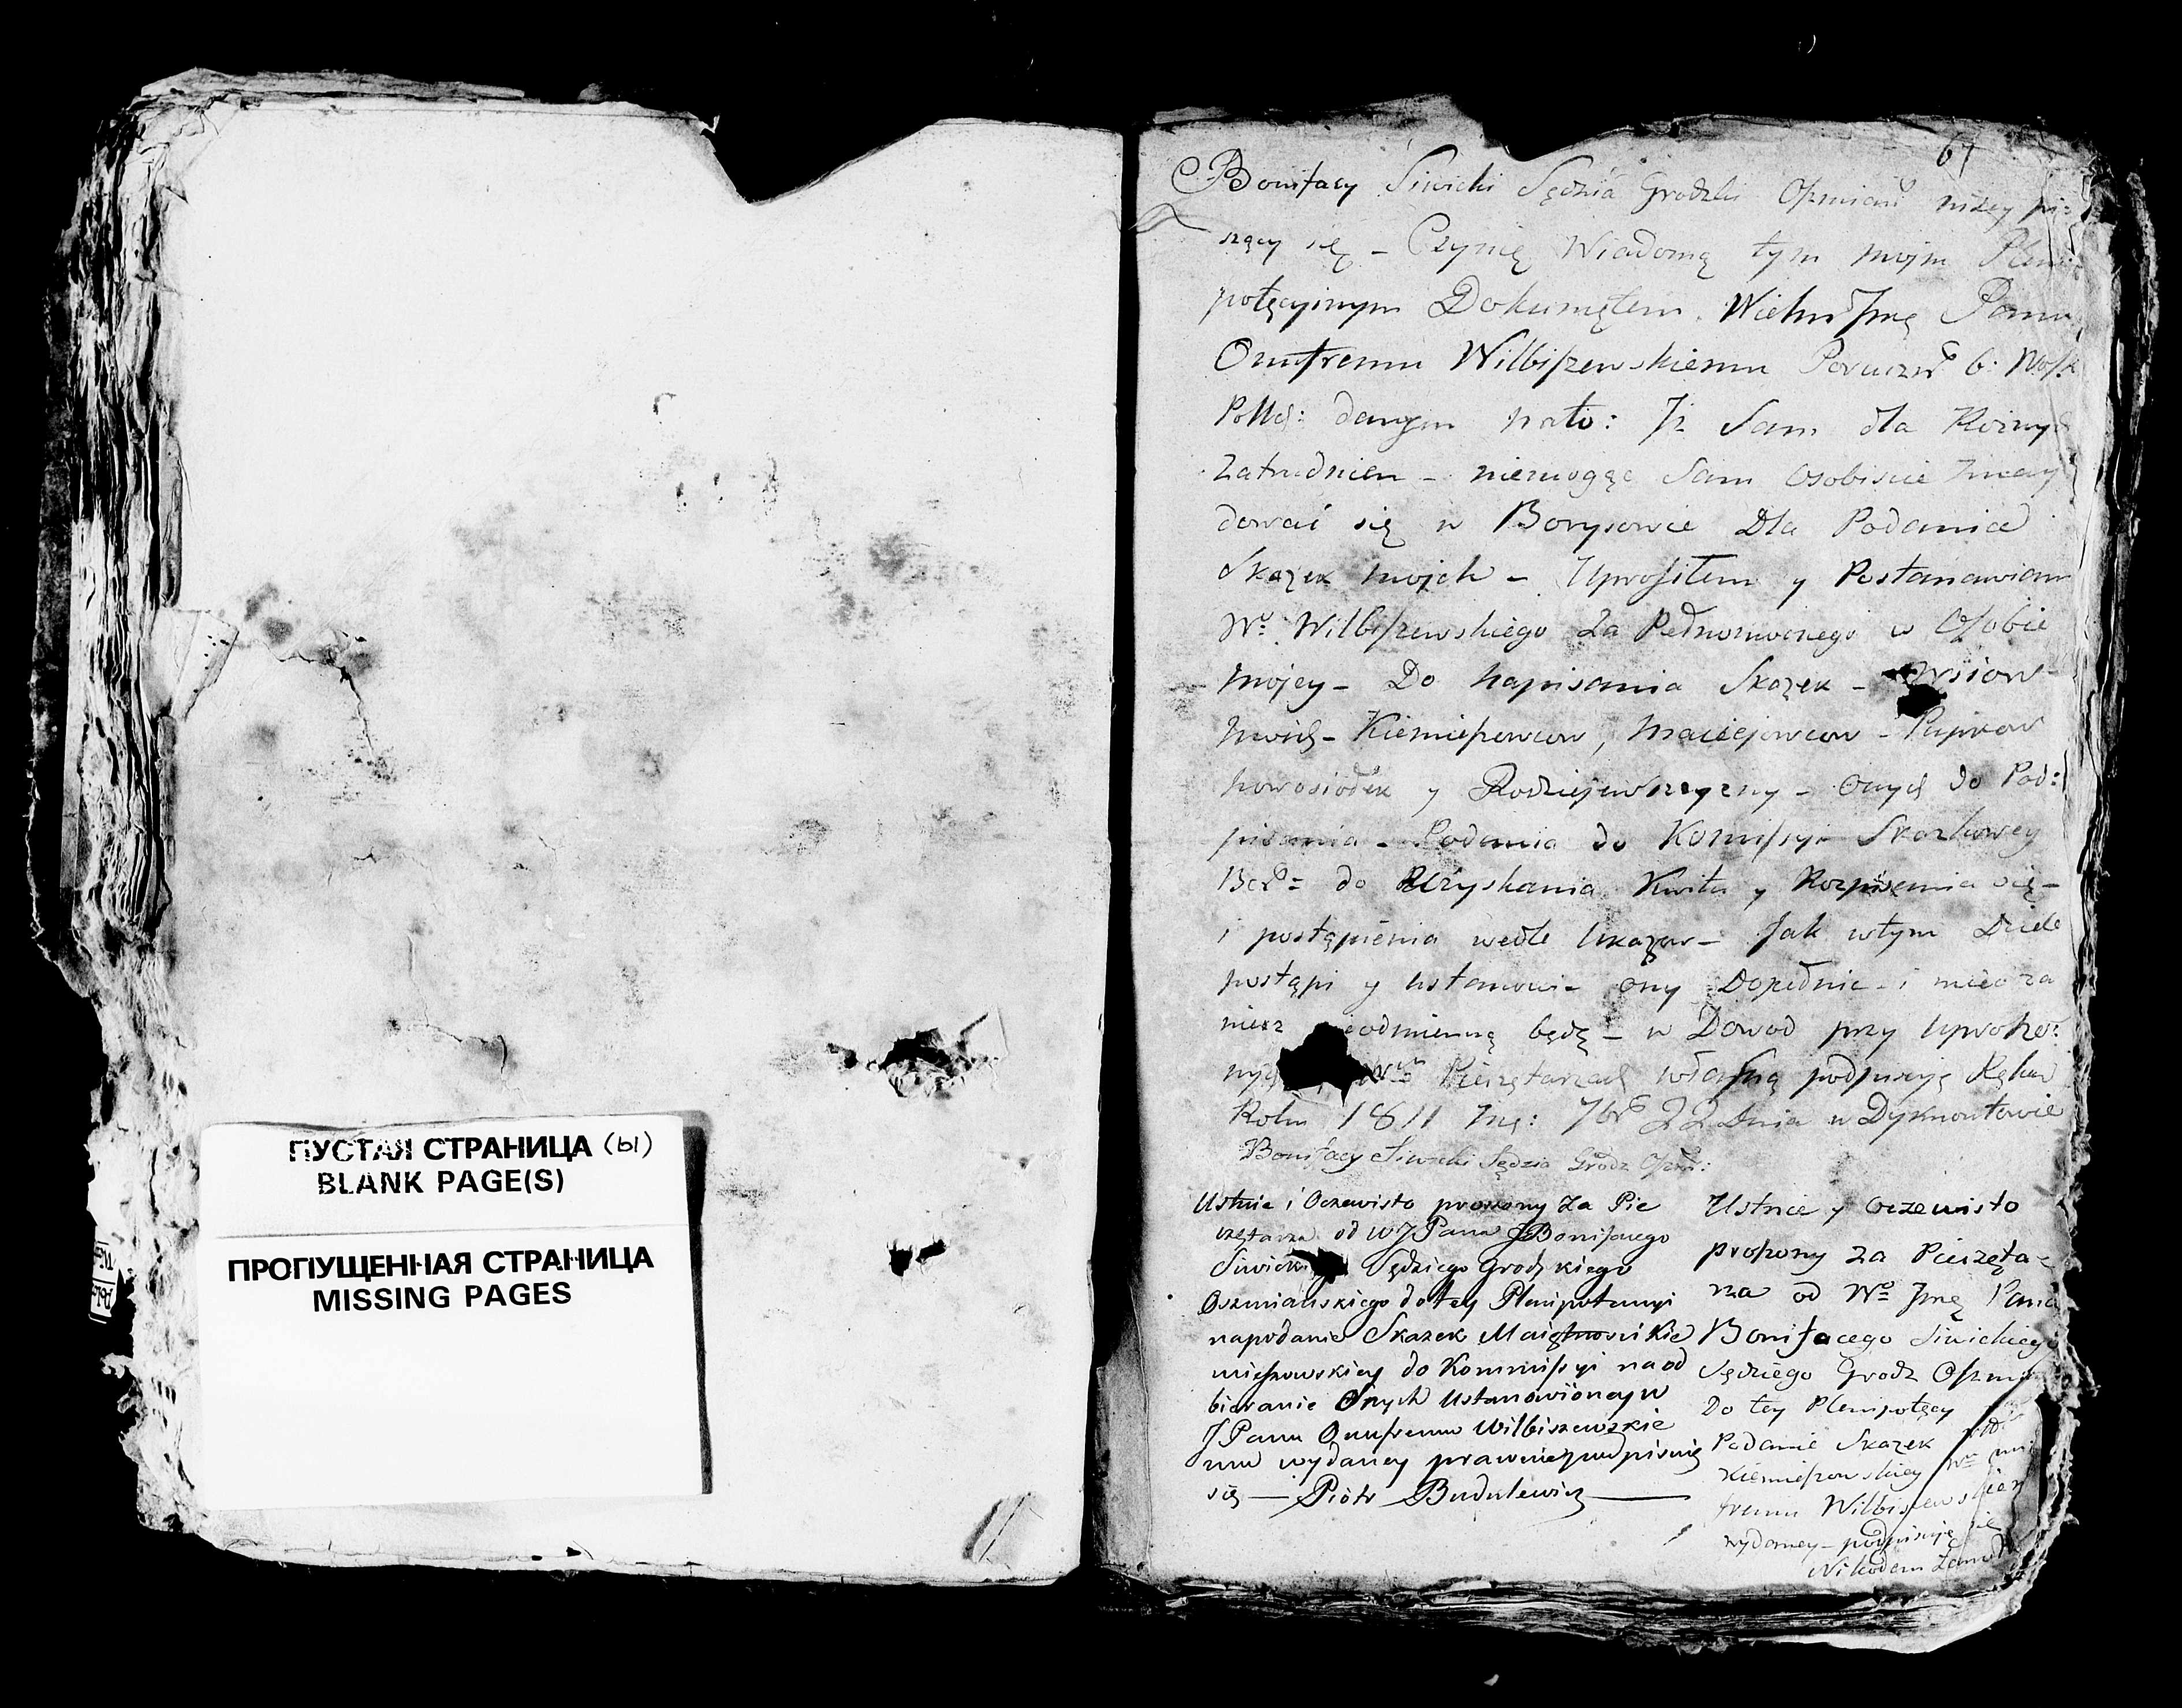 ПУСТАЯ СТРАНИЦА (ы)
BLANK PAGE(S)
ПРОПУЩЕННАЯ СТРАНИЦА
MISSING PAGES
67
Bonifacy Siwicki Sędzia Grodzki Oszmiań niżey pi=
szący się – Czynię Wiadomą tym mojm Pleni
potęcyinym Dokumętem Jmę Panu
Onufremu Wilbiszewskiemu b: Wosk
Polsk: danym nato: Iż Sam dla Rożnych
Zatrudnien – niemogąc Sam Osobiscie znay
dować się w Borysowie Dla Podania
Skazek mojch – Uprosiłem y Postanawiam
Wº Wilbiszewskiego Za Pełnomocnego w Osobie
mojey – Do napisania Skazek – Wsiow
moich – Kiemieszowcow, Maciejowcow –
nowosiołek y Rodziejewszczyzny – onych do Pod:
pisania – Podania do Komissyi Skazkowey
do Uzyskania Kwitu y Rozpisania się –
i postąpienia wedle Ukazow – Jak wtym Dziele
postąpi y ustanowi – ony Dopełnie – i
nieodmienną będę – w Dowod przy Uproszo:
nych Pieczętarzach własną podpisuję Ręką
Roku 1811 Mą: 7br 22 Dnia w Dyrmontowie
Bonifacy Siwicki Sędzia Grodz Oszm:
Ustnie i Oczewisto proszony Za Pie
czętarza od WJ Pana Bonifacego
Siwickiego Sędziego Grodzkiego
Oszmianskiego do tey Plenipotencyi
napodanie Skazek Maiętnosci Kie
mieszowskiey do Kommissyi na od
bieranie Onych Ustanowioney W
J Panu Onufremu Wilbiszewskie
mu wydaney prawnie podpisuię
się — Piotr Budulewicz —
Ustnie y oczewisto
proszony za Pieczęta=
rza od Wº Jmę Pana
Bonifacego Siwickiego
Sędziego Grodz Oszmia
Do tey Plenipotęcy
Podanie Skazek
Kiemieszowskiey
fremu Wilbiszewskiem
wydaney – podpisuję się
Nikodem